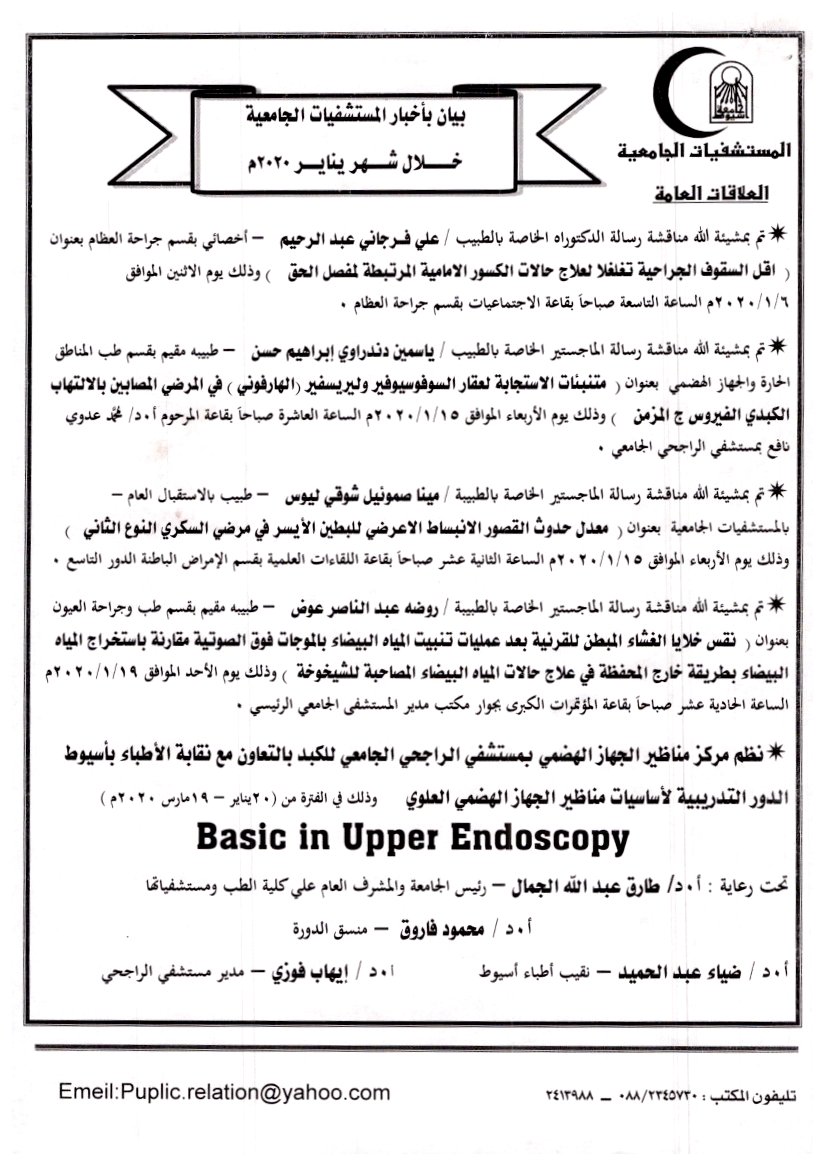 جامعة
أسيوط
المستشفيات الجامعية
العلاقات العامة
بيان بأخبار المستشفيات الجامعية
خلال شهر يناير ٢٠٢٠م
✶ تم بمشيئة الله مناقشة رسالة الدكتوراه الخاصة بالطبيب / علي فرجاني عبد الرحيم – أخصائي بقسم جراحة العظام بعنوان
( اقل السقوف الجراحية تغلغلا لعلاج حالات الكسور الامامية المرتبطة لمفصل الحق ) وذلك يوم الاثنين الموافق
٢٠٢٠/١/٦م الساعة التاسعة صباحاً بقاعة الاجتماعيات بقسم جراحة العظام .
✶ تم بمشيئة الله مناقشة رسالة الماجستير الخاصة بالطبيب / ياسمين دندراوي إبراهيم حسن – طبيبه مقيم بقسم طب المناطق
الحارة والجهاز الهضمي بعنوان ( متنبئات الاستجابة لعقار السوفوسيوفير وليريسفير (الهارفوني ) في المرضي المصابين بالالتهاب
الكبدي الفيروس ج المزمن ) وذلك يوم الأربعاء الموافق ٢٠٢٠/١/١٥م الساعة العاشرة صباحاً بقاعة المرحوم أ.د/ محمد عدوي
نافع بمستشفي الراجحي الجامعي .
✶ تم بمشيئة الله مناقشة رسالة الماجستير الخاصة بالطبيبة / مينا صموئيل شوقي ليوس – طبيب بالاستقبال العام –
بالمستشفيات الجامعية بعنوان ( معدل حدوث القصور الانبساط الاعرضي للبطين الأيسر في مرضي السكري النوع الثاني )
وذلك يوم الأربعاء الموافق ٢٠٢٠/١/١٥م الساعة الثانية عشر صباحاً بقاعة اللقاءات العلمية بقسم الإمراض الباطنة الدور التاسع .
✶ تم بمشيئة الله مناقشة رسالة الماجستير الخاصة بالطبيبة / روضه عبد الناصر عوض – طبيبه مقيم بقسم طب وجراحة العيون
بعنوان ( نقس خلايا الغشاء المبطن للقرنية بعد عمليات تنبيت المياه البيضاء بالموجات فوق الصوتية مقارنة باستخراج المياه
البيضاء بطريقة خارج المحفظة في علاج حالات المياه البيضاء المصاحبة للشيخوخة ) وذلك يوم الأحد الموافق ٢٠٢٠/١/١٩م
الساعة الحادية عشر صباحاً بقاعة المؤتمرات الكبرى بجوار مكتب مدير المستشفى الجامعي الرئيسي .
✶ نظم مركز مناظير الجهاز الهضمي بمستشفي الراجحي الجامعي للكبد بالتعاون مع نقابة الأطباء بأسيوط
الدور التدريبية لأساسيات مناظير الجهاز الهضمي العلوي وذلك في الفترة من (٢٠يناير – ١٩مارس ٢٠٢٠م )
Basic in Upper Endoscopy
تحت رعاية : أ.د/ طارق عبد الله الجمال – رئيس الجامعة والمشرف العام علي كلية الطب ومستشفياتها
أ.د / محمود فاروق – منسق الدورة
أ.د / ضياء عبد الحميد – نقيب أطباء أسيوط أ.د / إيهاب فوزي – مدير مستشفي الراجحي
تليفون المكتب : ٠٨٨/٢٣٤٥٧٣٠ – ٢٤١٣٩٨٨ Emeil:Puplic.relation@yahoo.com